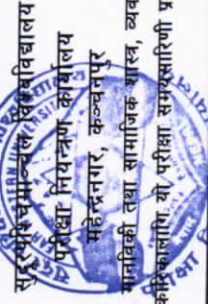 सुदूरपश्चिमाञ्चल विश्वविद्यालय
परीक्षा नियन्त्रण कार्यालय
महेन्द्रनगर, कञ्चनपुर
मानविकी तथा सामाजिक शास्त्र, व्यव
यो परीक्षा समयसारिणी प्र